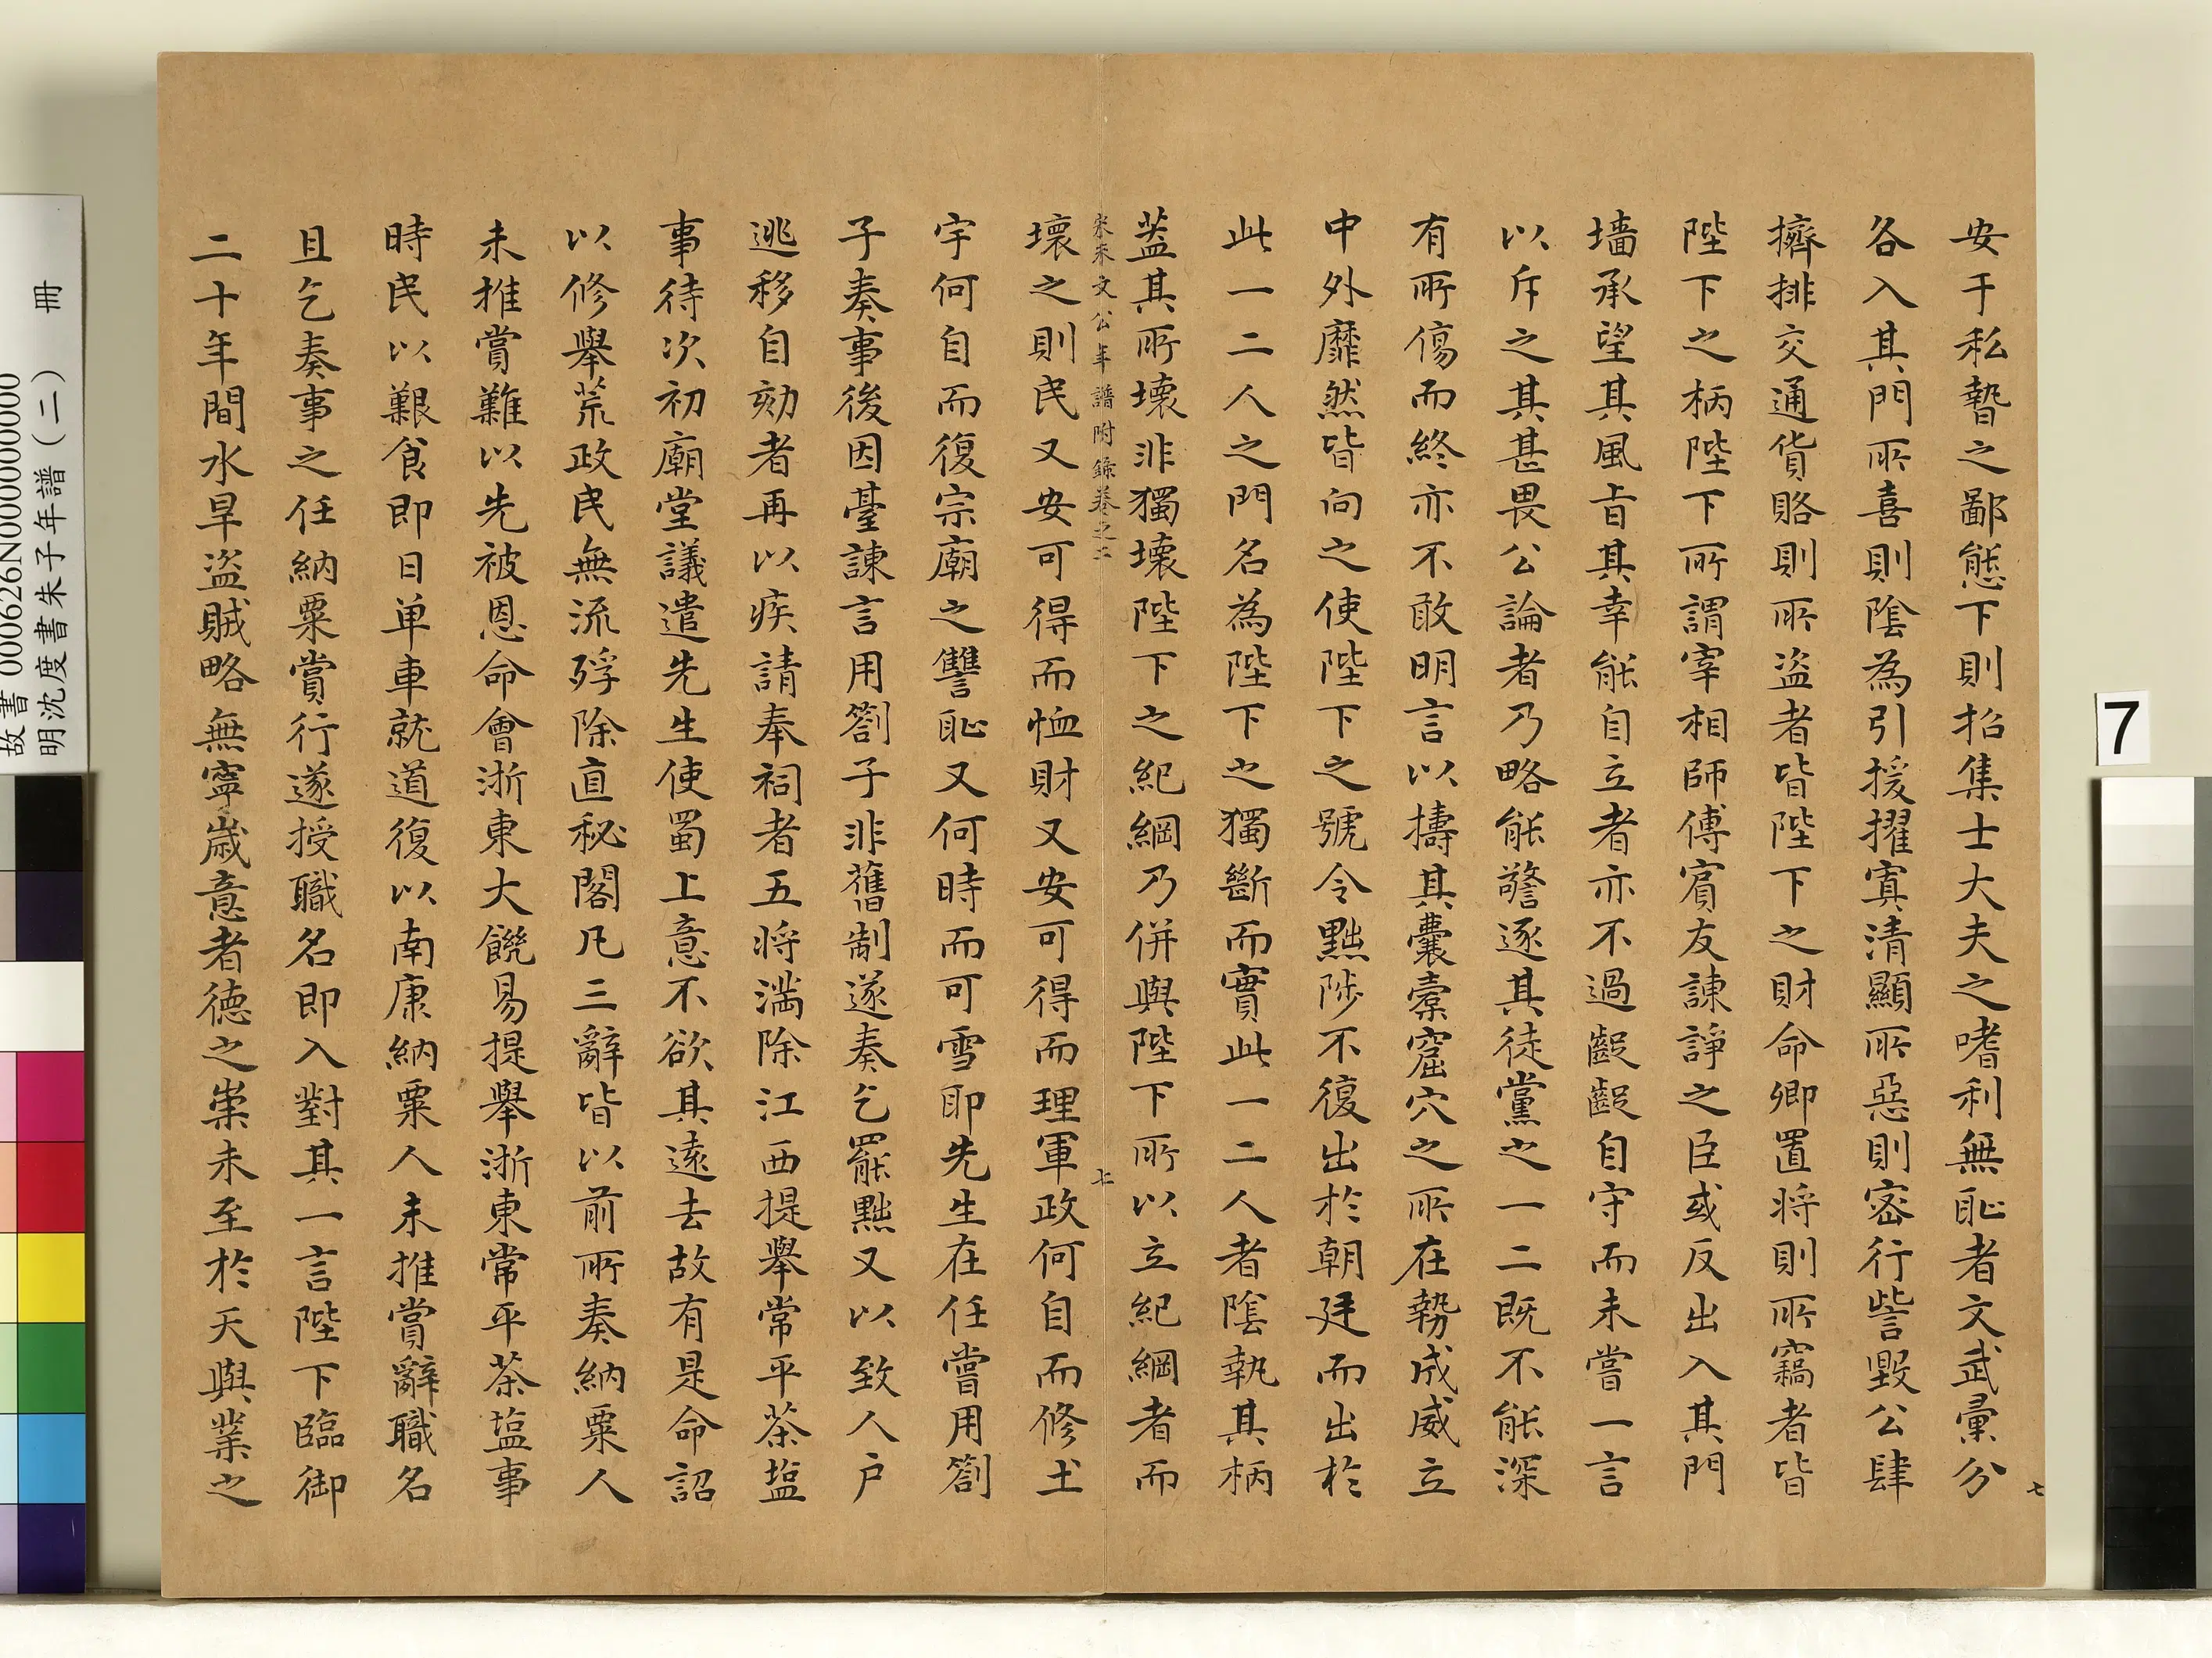 安于私褻之鄙態下則招集士大夫之嗜利無恥者文武彙分
各入其門所喜則陰為引援擢寘清顯所惡則密行訾毀公肆
擠排交通貨賂則所盜者皆陛下之財命卿置將則所竊者皆
陛下之柄陛下所謂宰相師傅賓友諫諍之臣或反出入其門
墻承望其風旨其幸能自立者亦不過齪齪自守而未嘗一言
以斥之其甚畏公論者乃略能警逐其徒黨之一二既不能深
有所傷而終亦不敢明言以擣其囊橐窟穴之所在勢成威立
中外靡然皆向之使陛下之號令黜陟不復出於朝廷而出於
此一二人之門名為陛下之獨斷而實此一二人者陰執其柄
蓋其所壞非獨壞陛下之紀綱乃併與陛下所以立紀綱者而
宋朱文公年譜附錄卷之二 七
壞之則民又安可得而恤財又安可得而理軍政何自而修土
宇何自而復宗廟之讐恥又何時而可雪耶先生在任嘗用劄
子奏事後因臺諫言用劄子非舊制遂奏乞罷黜又以致人户
逃移自劾者再以疾請奉祠者五將滿除江西提舉常平茶塩
事待次初廟堂議遣先生使蜀上意不欲其遠去故有是命詔
以修舉荒政民無流殍除直秘閣凡三辭皆以前所奏納粟人
未推賞難以先被恩命會浙東大饑易提舉浙東常平茶塩事
時民以艱食即日单車就道復以南康納粟人未推賞辭職名
且乞奏事之任納粟賞行遂授職名即入對其一言陛下臨御
二十年間水旱盜賊略無寧歲意者德之崇未至於天與業之
七
7
故書 000626N000000000
明沈度書朱子年譜(二) 冊